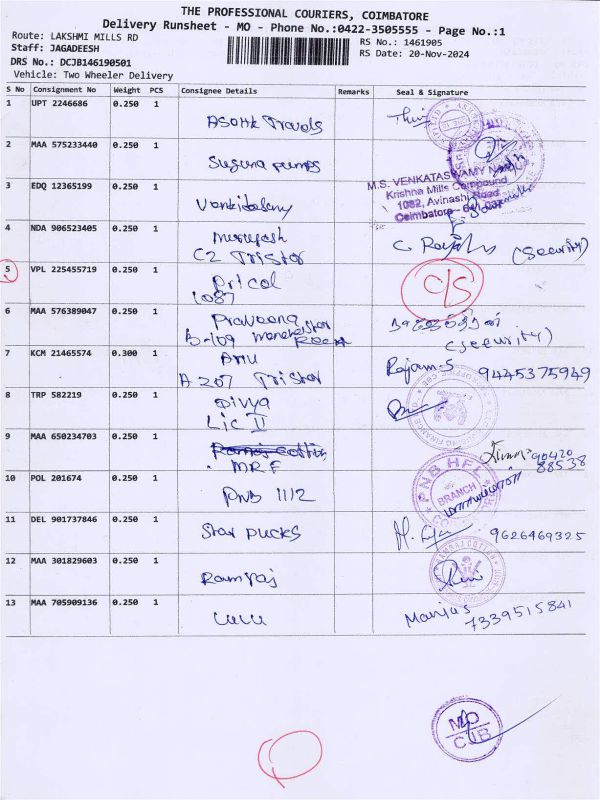 THE PROFESSIONAL COURIERS, COIMBATORE
Delivery Runsheet - MO - Phone No.:0422-3505555 - Page No.:1
Route: LAKSHMI MILLS RD
RS No.: 1461905
Staff: JAGADEESH
RS Date: 20-Nov-2024
DRS No.: DCJB146190501
Vehicle: Two Wheeler Delivery
S No Consignment No Weight PCS Consignee Details Remarks Seal & Signature
1 UPT 2246686 0.250 1
Travels
2 MAA 575233440 0.250 1
Suguna pumps
3 EDQ 12365199 0.250 1
M.S. VENKATASWAMY
Krishna Mills Compound
1082, Avinashi Road
Coimbatore
4 NDA 906523405 0.250 1
Murugesh
C2 Tristar
(Security)
5 VPL 225455719 0.250 1
Pricol
1087
C/S
6 MAA 576389047 0.250 1
Praveena
B-109 Manchester
(Security)
7 KCM 21465574 0.300 1
Anu
A 207 Tristar
Rajam.S 9445375949
8 TRP 582219 0.250 1
Divya
LIC II
9 MAA 650234703 0.250 1
MRF
90420
88538
10 POL 201674 0.250 1
PNB 1112
PNB HFL
BRANCH
11 DEL 901737846 0.250 1
Star pucks
9626469325
12 MAA 301829603 0.250 1
Ramraj
RAMRAJ COTTON
13 MAA 705909136 0.250 1
Lulu
Manjus
7339515841
MO
CJB